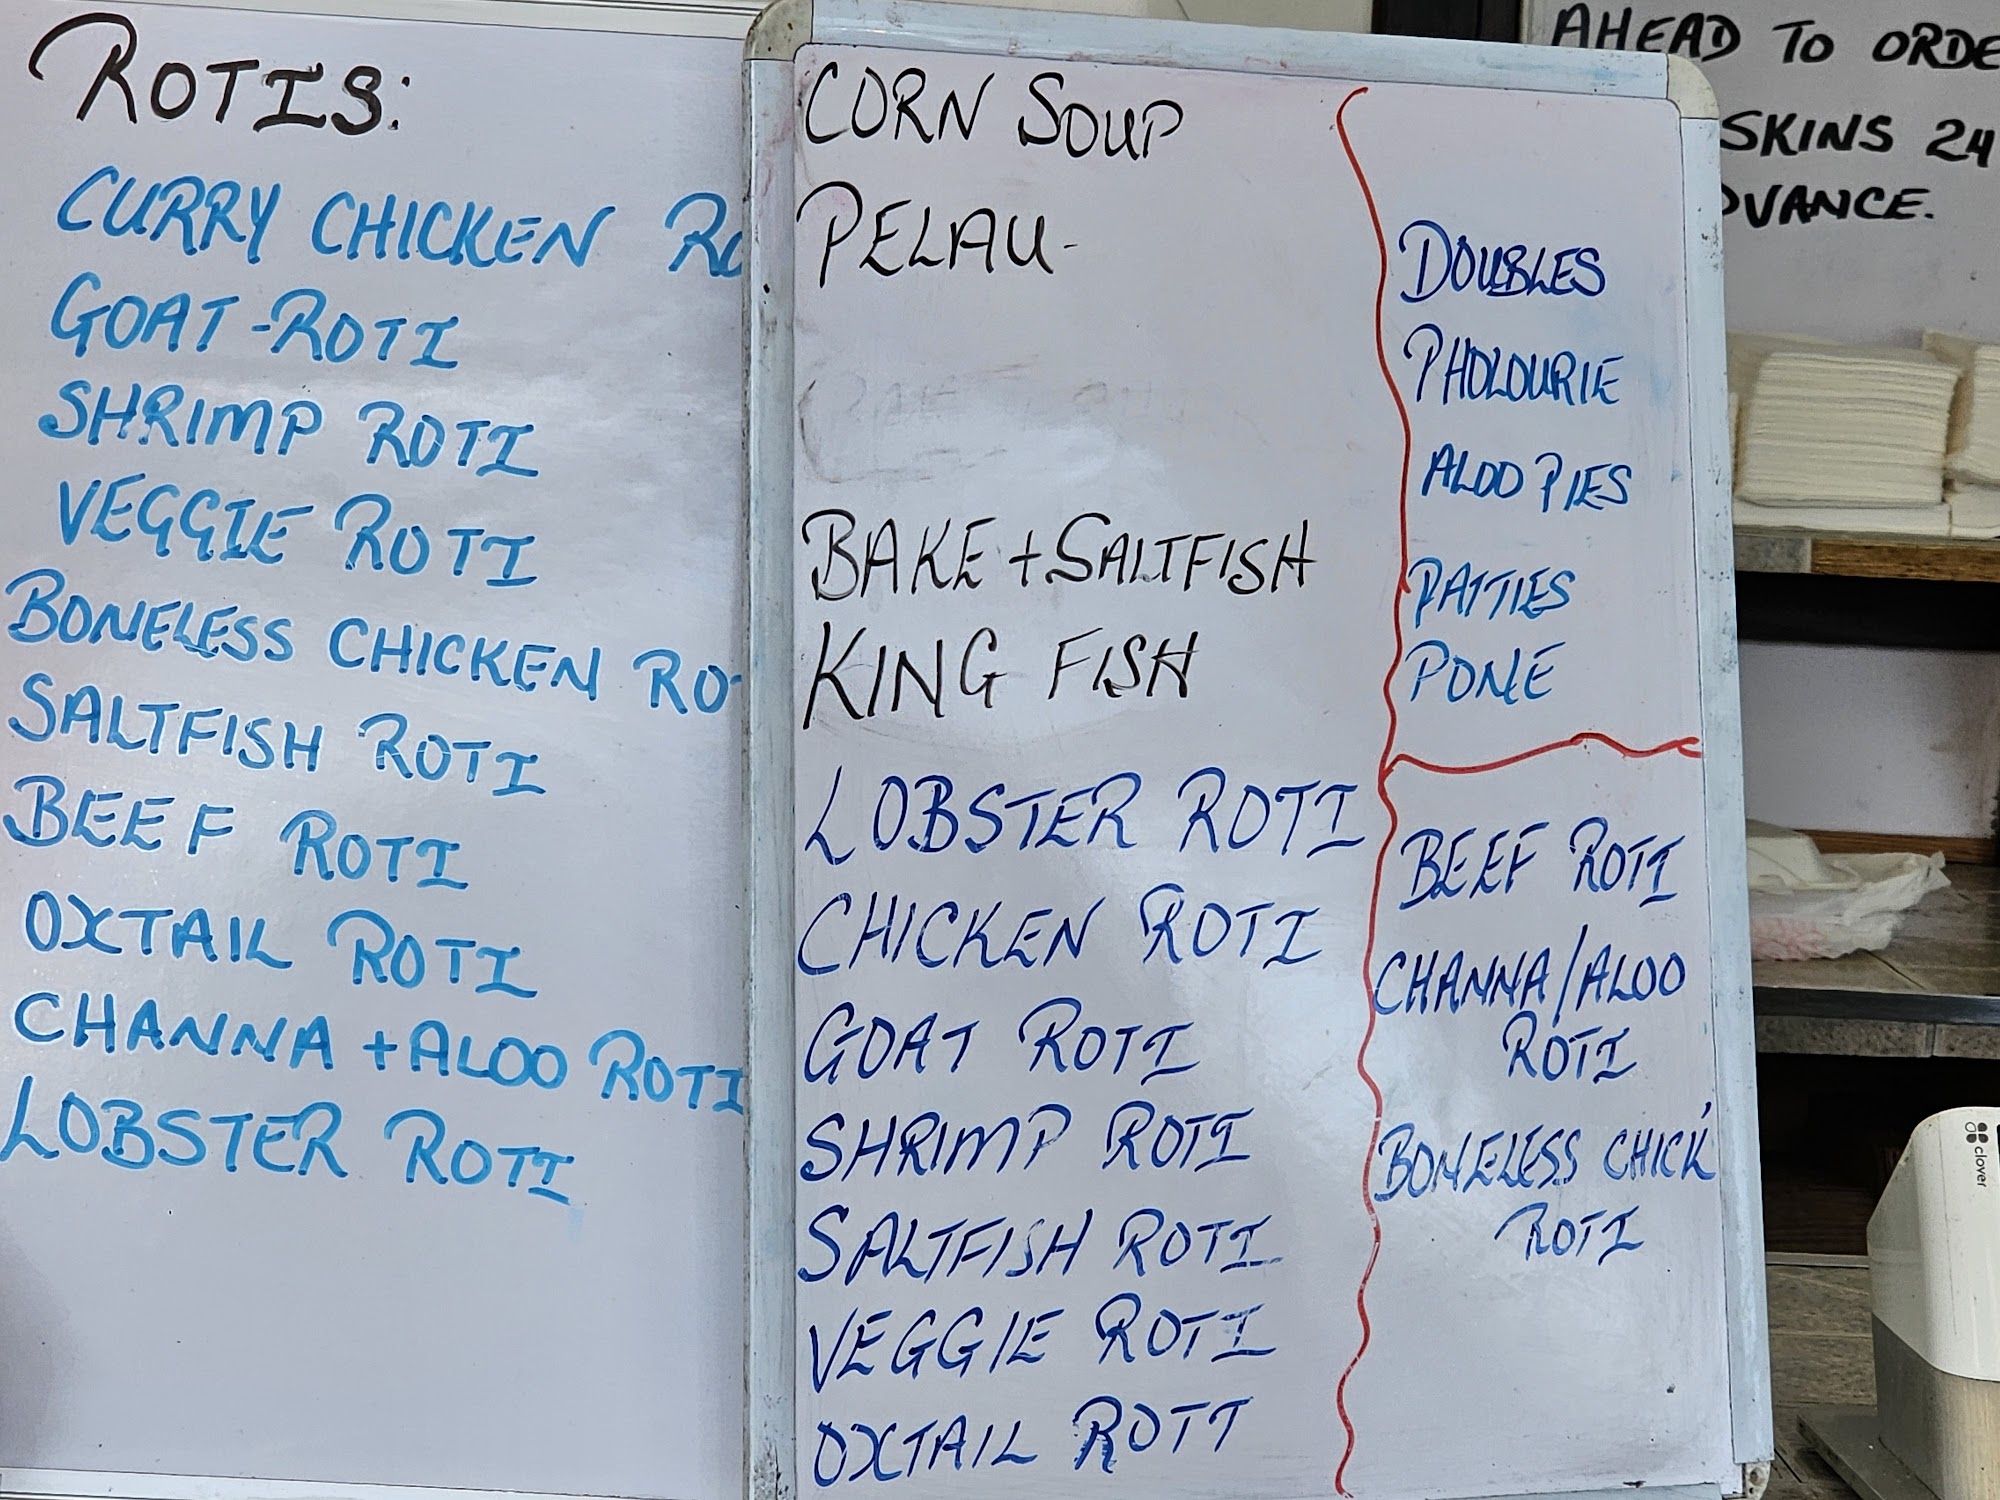 ROTIS:
CURRY CHICKEN RO
GOAT-ROTI
SHRIMP ROTI
VEGGIE ROTI
BONELESS CHICKEN RO
SALTFISH ROTI
BEEF ROTI
OXTAIL ROTI
CHANNA + ALOO ROTI
LOBSTER ROTI
CORN SOUP
PELAU-
BAKE + SALTFISH
KING FISH
LOBSTER ROTI
CHICKEN ROTI
GOAT ROTI
SHRIMP ROTI
SALTFISH ROTI
VEGGIE ROTI
OXTAIL ROTI
DOUBLES
PHOLOURIE
ALOO PIES
PATTIES
PONE
BEEF ROTI
CHANNA/ALOO
ROTI
BONELESS CHICK'
ROTI
AHEAD TO ORDE
SKINS 24
DVANCE.
clover